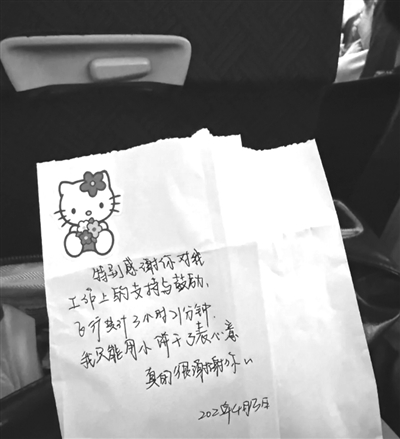 特别感谢你对我
工作上的支持与鼓励,
飞行共计3小时21分钟.
我只能用小饼干了表心意
真的很谢谢你
202年4月3日